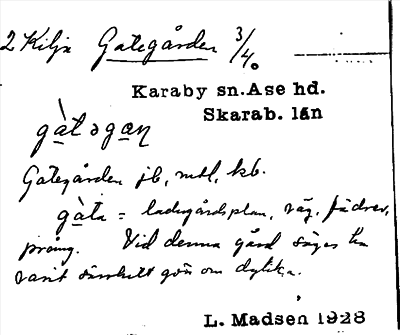 2 Kilja Gategården 3/4.
Karaby sn. Ase hd.
Skarab. län
gàtəgan
Gategården jb, mtl, kb.
gàta = ladugårdsplan, väg, fädrev,
prång. Vid denna gård säges ha
varit särskilt gon om dylika.
L. Madsen 1928